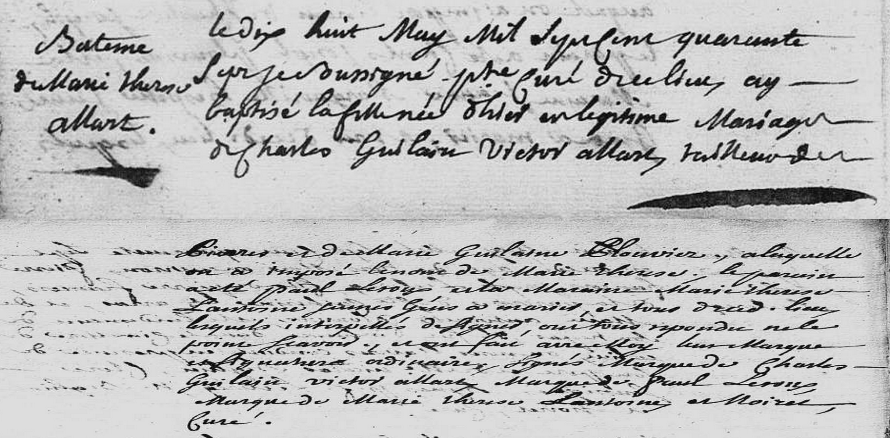 Bateme
de Marie therese
allart.
le dix huit May Mil Sept Cent quarante
Sept je Soussigné ptre Curé de ce lieu, ay
baptisé la fille née d'hier en legitime Mariage
de Charles Guilain Victor allart, tailleur de
Pierres et de Marie Guilaine Plouviez, a laquelle
on a imposé le nom de Marie therese. le parein
a été paul Leroy et la Mareine Marie therese
Lantoine jeunes Gens a marier, et tous de ced. lieu
lesquels interpellés de Signer ont tous repondu ne le
point Scavoir, et ont fait avec Moy leur Marque
et Signature ordinaires Signés Marque de Charles
Guilain victor allart, Marque de Paul Leroy,
Marque de Marie therese Lantoine, et Moiret,
Curé.